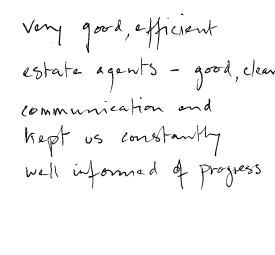 very good, efficient
estate agents - good, clear
communication and
kept us constantly
well informed of progress